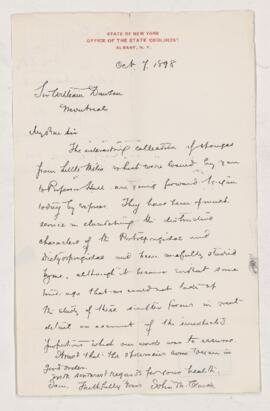 STATE OF NEW YORK
OFFICE OF THE STATE GEOLOGIST
ALBANY, N. Y.
Oct 7. 1898
Sir William Dawson
Montreal
My dear Sir
The interesting collection of sponges
from Little Metis which were loaned by you
to Professor Hall are going forward to you
today by express. They have been of much
service in elucidating the distinctive
characters of the Protospongidae and
Dictyospongidae and been carefully studied
by me, although it became evident some
time ago that we could not take up
the study of these smaller forms in much
detail on account of the
proportions which our work was to assume.
I trust that the specimens will reach in
good order.
With sentiments regards for your health
I am, Faithfully Yours John M. Clarke